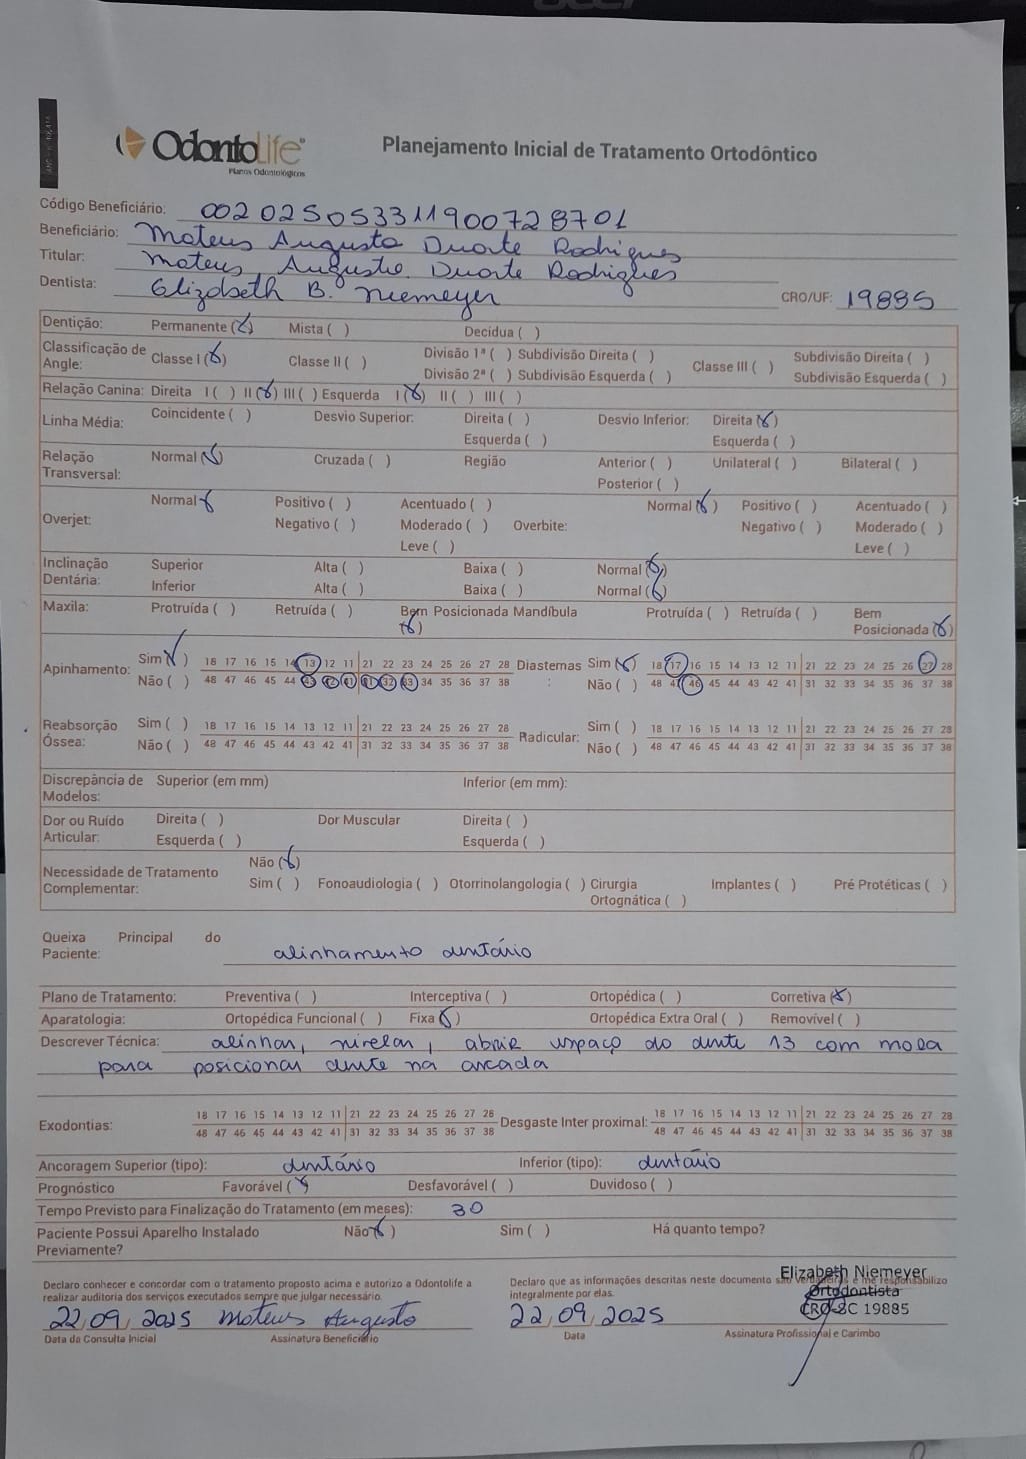 OdontoLife®
Planos Odontológicos
Planejamento Inicial de Tratamento Ortodôntico
Código Beneficiário: 002025053311900728701
Beneficiário: Mateus Augusto Duarte Rodrigues
Titular: Mateus Augusto Duarte Rodrigues
Dentista: Elizabeth B. Niemeyer CRO/UF: 19885
Dentição: Permanente (X) Mista ( ) Decídua ( )
Classificação de Angle: Classe I (X) Classe II ( ) Divisão 1ª ( ) Subdivisão Direita ( ) Classe III ( ) Subdivisão Direita ( )
Divisão 2ª ( ) Subdivisão Esquerda ( ) Subdivisão Esquerda ( )
Relação Canina: Direita I ( ) II (X) III ( ) Esquerda I (X) II ( ) III ( )
Linha Média: Coincidente ( ) Desvio Superior: Direita ( ) Desvio Inferior: Direita (X)
Esquerda ( ) Esquerda ( )
Relação Transversal: Normal (X) Cruzada ( ) Região Anterior ( ) Unilateral ( ) Bilateral ( )
Posterior ( )
Overjet: Normal X Positivo ( ) Acentuado ( ) Overbite: Normal (X) Positivo ( ) Acentuado ( )
Negativo ( ) Moderado ( ) Negativo ( ) Moderado ( )
Leve ( ) Leve ( )
Inclinação Dentária: Superior Alta ( ) Baixa ( ) Normal (X)
Inferior Alta ( ) Baixa ( ) Normal (X)
Maxila: Protruída ( ) Retruída ( ) Bem Posicionada (X) Mandíbula Protruída ( ) Retruída ( ) Bem Posicionada (X)
Apinhamento: Sim (X) 18 17 16 15 14 13 12 11 21 22 23 24 25 26 27 28 Diastemas: Sim (X) 18 17 16 15 14 13 12 11 21 22 23 24 25 26 27 28
Não ( ) 48 47 46 45 44 43 42 41 31 32 33 34 35 36 37 38 Não ( ) 48 47 46 45 44 43 42 41 31 32 33 34 35 36 37 38
Reabsorção Óssea: Sim ( ) 18 17 16 15 14 13 12 11 21 22 23 24 25 26 27 28 Radicular: Sim ( ) 18 17 16 15 14 13 12 11 21 22 23 24 25 26 27 28
Não ( ) 48 47 46 45 44 43 42 41 31 32 33 34 35 36 37 38 Não ( ) 48 47 46 45 44 43 42 41 31 32 33 34 35 36 37 38
Discrepância de Modelos: Superior (em mm) Inferior (em mm):
Dor ou Ruído Articular: Direita ( ) Dor Muscular Direita ( )
Esquerda ( ) Esquerda ( )
Necessidade de Tratamento Complementar: Não (X)
Sim ( ) Fonoaudiologia ( ) Otorrinolangologia ( ) Cirurgia Ortognática ( ) Implantes ( ) Pré Protéticas ( )
Queixa Principal do Paciente: alinhamento dentário
Plano de Tratamento: Preventiva ( ) Interceptiva ( ) Ortopédica ( ) Corretiva (X)
Aparatologia: Ortopédica Funcional ( ) Fixa (X) Ortopédica Extra Oral ( ) Removível ( )
Descrever Técnica: alinhar, nivelar, abrir espaço do dente 13 com mola
para posicionar dente na arcada
Exodontias: 18 17 16 15 14 13 12 11 21 22 23 24 25 26 27 28 Desgaste Inter proximal: 18 17 16 15 14 13 12 11 21 22 23 24 25 26 27 28
48 47 46 45 44 43 42 41 31 32 33 34 35 36 37 38 48 47 46 45 44 43 42 41 31 32 33 34 35 36 37 38
Ancoragem Superior (tipo): dentário Inferior (tipo): dentário
Prognóstico Favorável (X) Desfavorável ( ) Duvidoso ( )
Tempo Previsto para Finalização do Tratamento (em meses): 30
Paciente Possui Aparelho Instalado Previamente? Não (X) Sim ( ) Há quanto tempo?
Declaro conhecer e concordar com o tratamento proposto acima e autorizo a Odontolife a
realizar auditoria dos serviços executados sempre que julgar necessário.
Declaro que as informações descritas neste documento são verdadeiras e me responsabilizo
integralmente por elas.
Elizabeth Niemeyer
Ortodontista
CRO-SC 19885
22/09/2025 Mateus Augusto
22/09/2025
Data da Consulta Inicial Assinatura Beneficiário
Data Assinatura Profissional e Carimbo